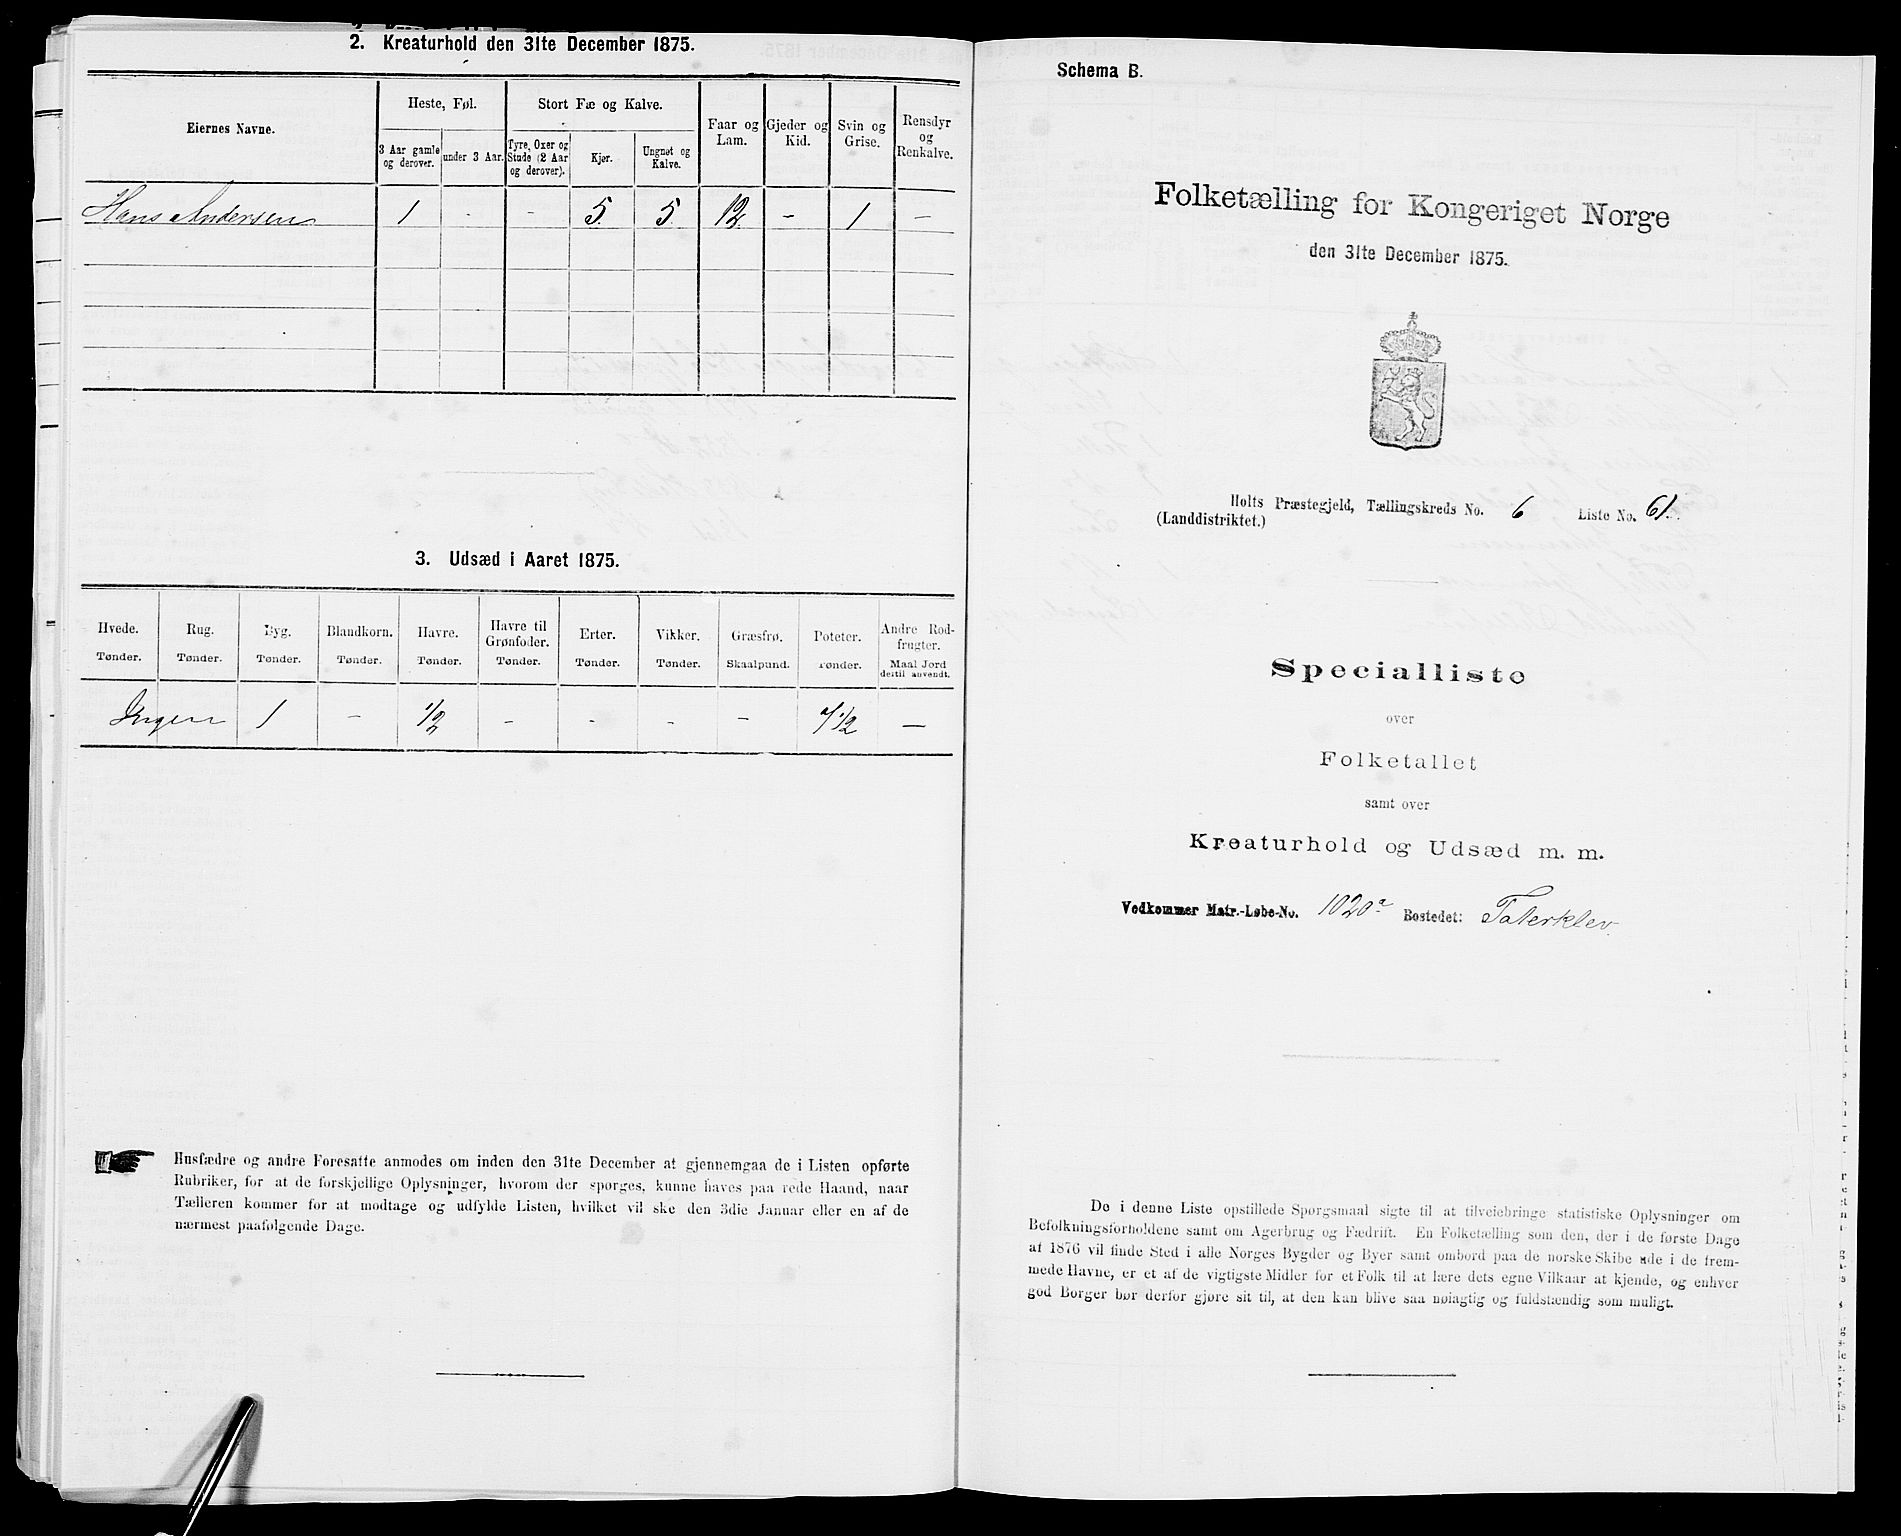 2. Kreaturhold den 31te December 1875.
Eiernes Navne.
Heste, Føl.
Stort Fæ og Kalve.
3 Aar gamle og derover.
under 3 Aar.
Tyre, Oxer og Stude (2 Aar og derover).
Kjør.
Ungnøt og Kalve.
Faar og Lam.
Gjeder og Kid.
Svin og Grise.
Rensdyr og Renkalve.
Hans Andersen 1 - - 5 5 12 - 1 -
3. Udsæd i Aaret 1875.
Hvede. Rug. Byg. Blandkorn. Havre. Havre til Grønfoder. Erter. Vikker. Græsfrø. Poteter. Andre Rodfrugter.
Tønder. Tønder. Tønder. Tønder. Tønder. Tønder. Tønder. Tønder. Skaalpund. Tønder. Maal Jord dertil anvendt.
Ingen 1 - 1/2 - - - - —
Husfædre og andre Foresatte anmodes om inden den 31te December at gjennemgaa de i Listen opførte
Rubriker, for at de forskjellige Oplysninger, hvorom der spørges, kunne haves paa rede Haand, naar
Tælleren kommer for at modtage og udfylde Listen, hvilket vil ske den 3die Januar eller en af de
nærmest paafølgende Dage.
Schema B.
Folketælling for Kongeriget Norge
den 31te December 1875.
Holts Præstegjeld, Tællingskreds No. 6 Liste No. 61.
(Landdistriktet.)
Specialliste
over
Folketallet
samt over
Kreaturhold og Udsæd m. m.
Vedkommer Matr.-Løbe-No. 1020a Bostedet: Taterklev.
De i denne Liste opstillede Spørgsmaal sigte til at tilveiebringe statistiske Oplysninger om
Befolkningsforholdene samt om Agerbrug og Fædrift. En Folketælling som den, der i de første Dage
af 1876 vil finde Sted i alle Norges Bygder og Byer samt ombord paa de norske Skibe ude i de frem-
mede Havne, er et af de vigtigste Midler for et Folk til at lære dets egne Vilkaar at kjende, og enhver
god Borger bør derfor gjøre sit til, at den kan blive saa nøiagtig og fuldstændig som muligt.